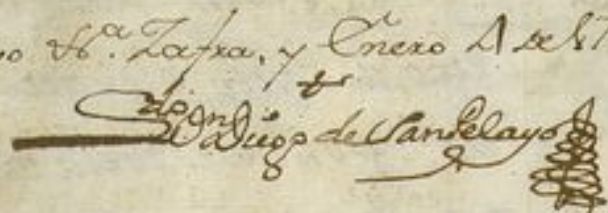 Zafra, y Enero 4 de 17
Diego de San Pelayo